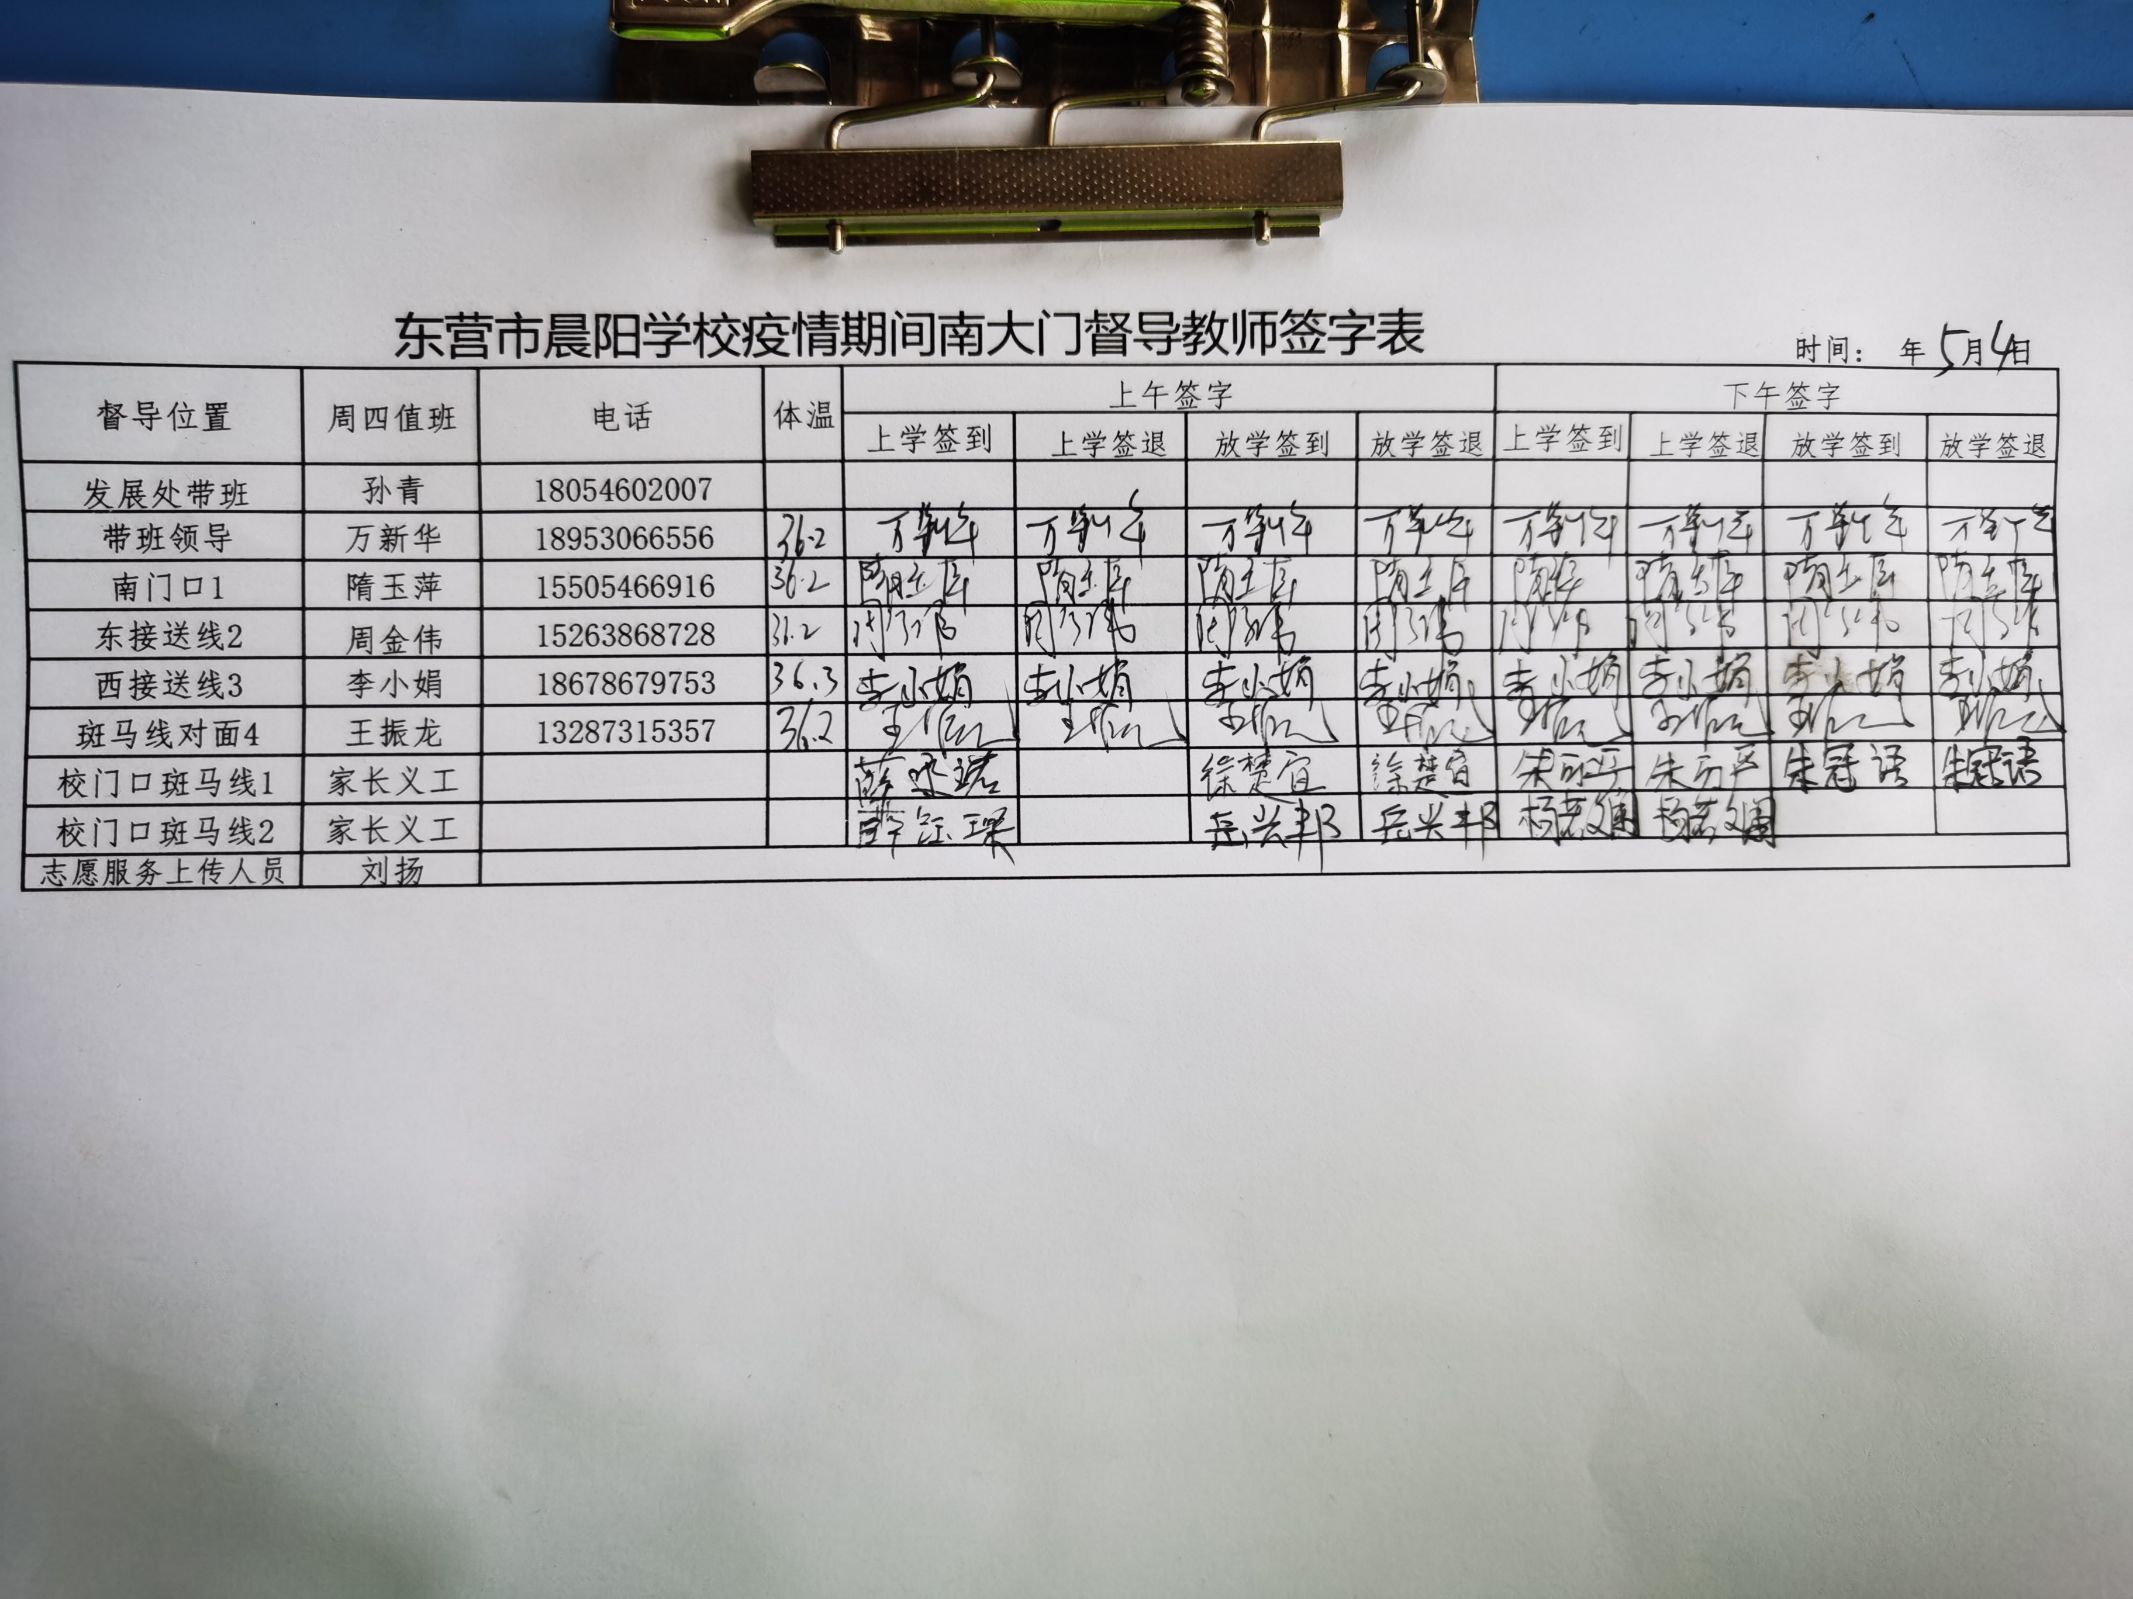 东营市晨阳学校疫情期间南大门督导教师签字表
时间： 年 5月4日
督导位置 周四值班 电话 体温 上午签字 下午签字
上学签到 上学签退 放学签到 放学签退 上学签到 上学签退 放学签到 放学签退
发展处带班 孙青 18054602007
带班领导 万新华 18953066556 36.2 万新华 万新华 万新华 万新华 万新华 万新华 万新华 万新华
南门口1 隋玉萍 15505466916 36.2 隋玉萍 隋玉萍 隋玉萍 隋玉萍 隋玉萍 隋玉萍 隋玉萍 隋玉萍
东接送线2 周金伟 15263868728 周金伟 周金伟 周金伟 周金伟 周金伟 周金伟 周金伟 周金伟
西接送线3 李小娟 18678679753 36.3 李小娟 李小娟 李小娟 李小娟 李小娟 李小娟 李小娟 李小娟
斑马线对面4 王振龙 13287315357 36.2 王振龙 王振龙 王振龙 王振龙 王振龙 王振龙 王振龙 王振龙
校门口斑马线1 家长义工 徐楚宜 徐楚宜 朱冠语 朱冠语
校门口斑马线2 家长义工 岳兴邦 岳兴邦
志愿服务上传人员 刘扬